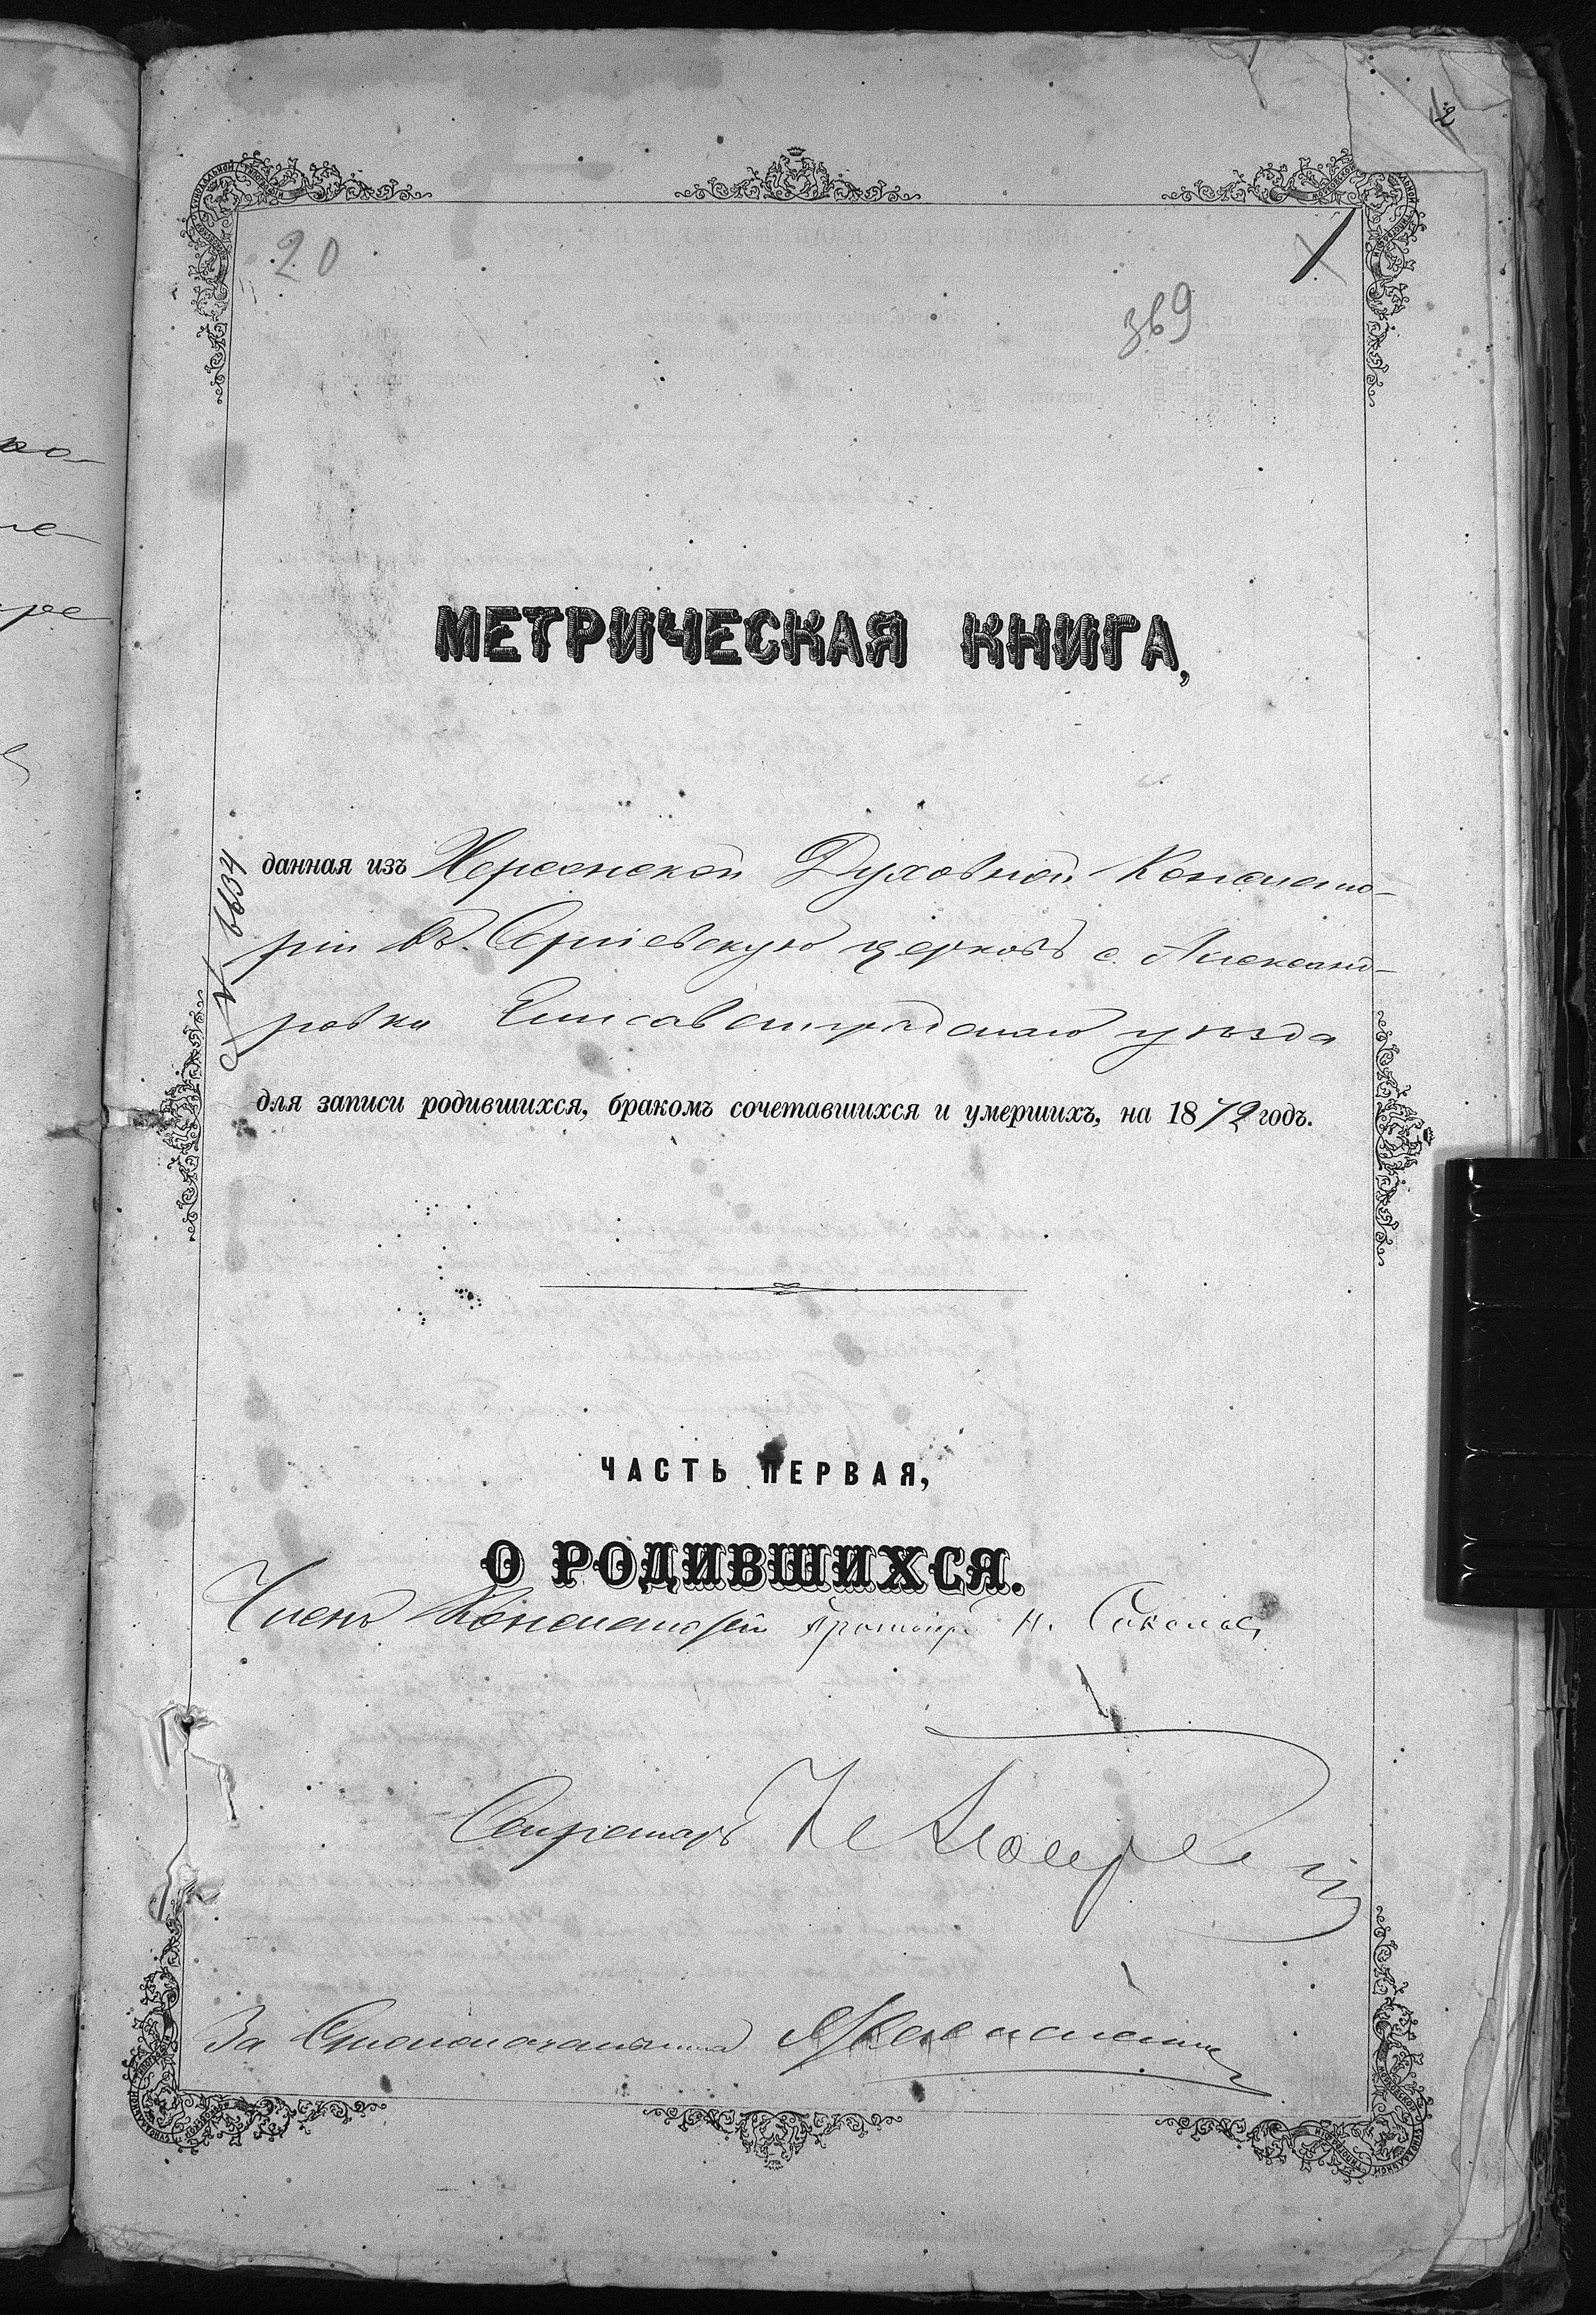 2
20
369
МЕТРИЧЕСКАЯ КНИГА,
№ 6634
данная изъ Херсонской Духовной Консисто-
ріи въ Сергіевскую церковь с. Александ-
ровки Елисаветградскаго уѣзда
для записи родившихся, бракомъ сочетавшихся и умершихъ, на 1872 годъ.
ЧАСТЬ ПЕРВАЯ,
О РОДИВШИХСЯ.
Членъ Консисторіи Протоіерей Н. Соколовъ
Секретарь
За Столоначальника